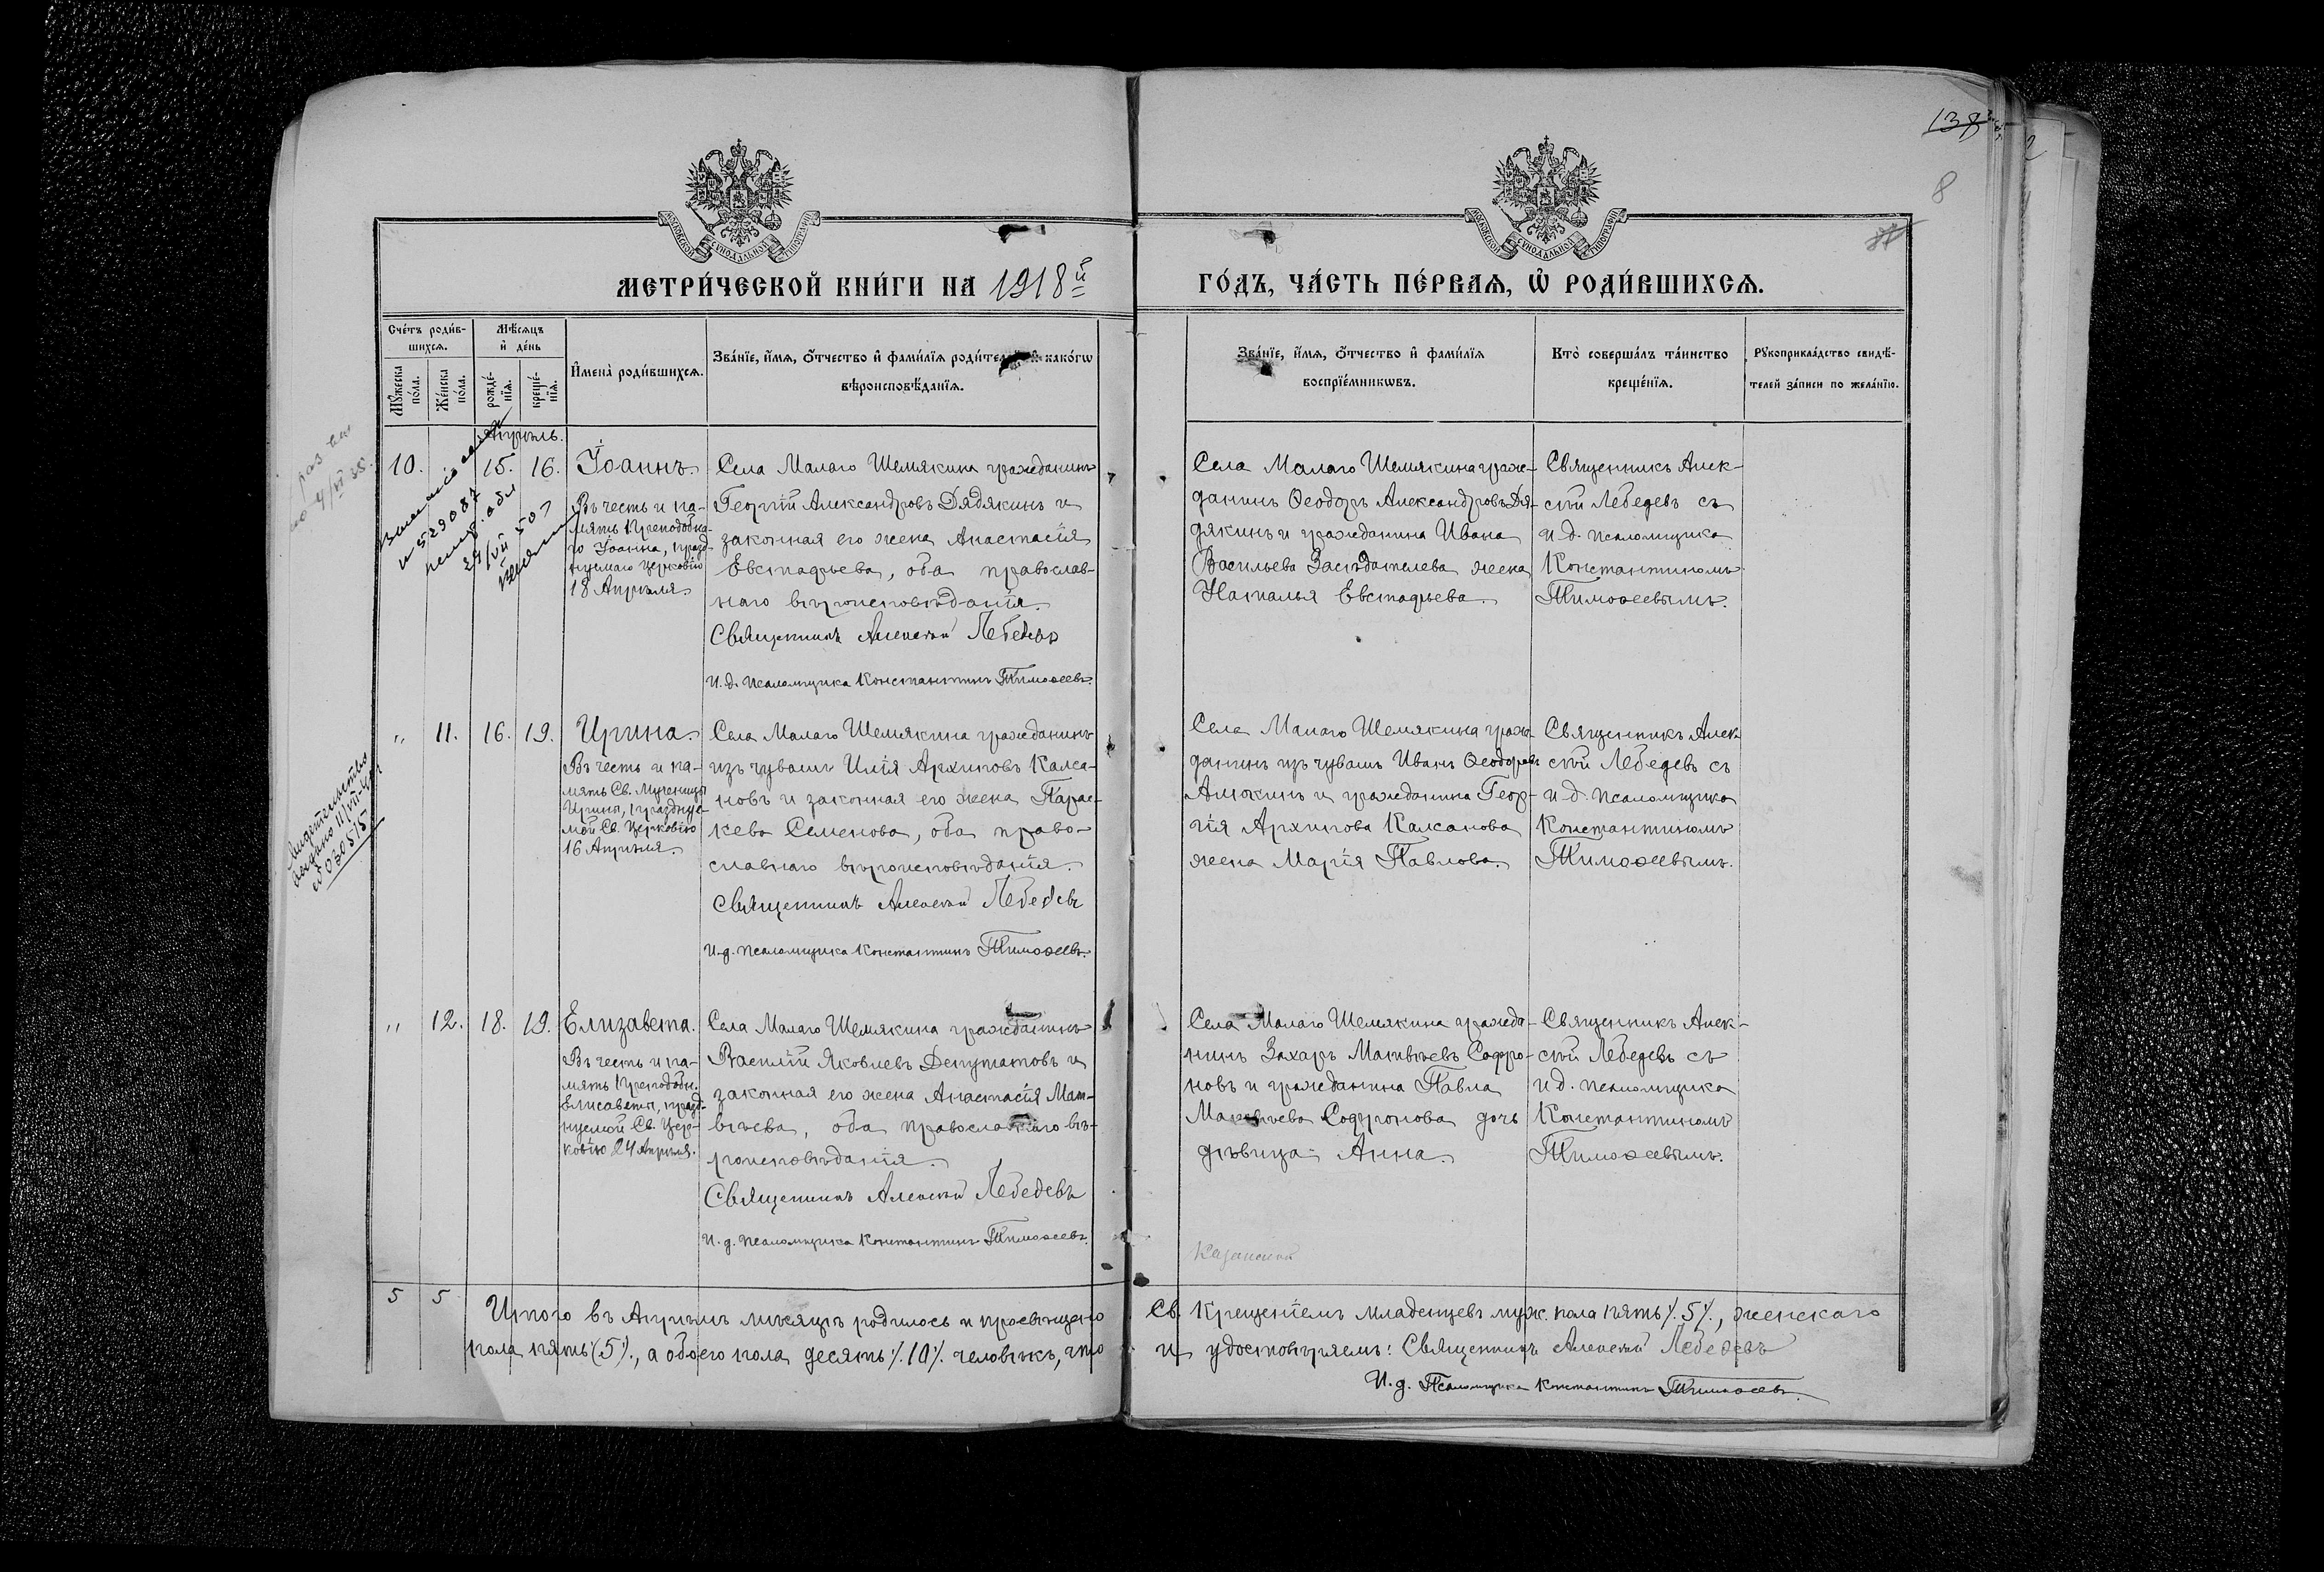 138
8
МЕТРИ́ЧЕСКОЙ КНИ́ГИ НА 1918й
ГО́ДЪ, ЧА́СТЬ ПЕ́РВАѦ, Ѡ҆ РОДИ́ВШИХСѦ.
Сче́тъ роди́в-
шихсѧ.
Мѣ́сѧцъ
и҆ де́нь
Мꙋ́жеска
по́ла.
Же́нска
по́ла.
рожде́-
нїѧ.
креще́-
нїѧ.
И҆мена̀ роди́вшихсѧ.
Зва́нїе, и҆́мѧ, ѻ҆́тчество и҆ фами́лїѧ роди́телей и҆ како́гѡ
вѣроисповѣ́данїѧ.
Зва́нїе, и҆́мѧ, ѻ҆́тчество и҆ фами́лїѧ
воспрїе́мникѡвъ.
Кто̀ соверша́лъ та́инство
креще́нїѧ.
Рꙋкоприкла́дство свидѣ́-
телей за́писи по жела́нїю.
Апрѣль.
10. 15. 16. Іоаннъ.
Въ честь и па-
мять Преподобна-
го Іоанна, празд-
нуемаго Церковію
18 Апрѣля.
Села Малаго Шемякина гражданинъ
Георгій Александровъ Дядякинъ и
законная его жена Анастасія
Евстафьева, оба православ-
наго вѣроисповѣданія.
Священникъ Алексій Лебедевъ
И.д. псаломщика Константинъ Тимоѳеевъ.
Села Малаго Шемякина граж-
данинъ Ѳеодоръ Александровъ Дя-
дякинъ и гражданина Ивана
Васильева Засѣдателева жена
Наталья Евстафьева.
Священникъ Алек-
сѣй Лебедевъ съ
и.д. псаломщика
Константиномъ
Тимоѳеевымъ.
" 11. 16. 19. Ирина.
Въ честь и па-
мять Св. Мученицы
Ирины, празднуе-
мой Св. Церковію
16 Апрѣля.
Села Малаго Шемякина гражданинъ
изъ чувашъ Илія Архиповъ Калса-
новъ и законная его жена Парас-
кева Семенова, оба право-
славнаго вѣроисповѣданія.
Священникъ Алексій Лебедевъ
И.д. псаломщика Константинъ Тимоѳеевъ.
Села Малаго Шемякина граж-
данинъ изъ чувашъ Иванъ Ѳеодоровъ
Алюкинъ и гражданина Геор-
гія Архипова Калсанова
жена Марія Павлова.
Священникъ Алек-
сѣй Лебедевъ съ
и.д. псаломщика
Константиномъ
Тимоѳеевымъ.
Свидетельство
выдано 11/VII-
№ 030515
" 12. 18. 19. Елизавета.
Въ честь и па-
мять Преподобн.
Елисаветы, празд-
нуемой Св. Цер-
ковію 24 Апрѣля.
Села Малаго Шемякина гражданинъ
Василій Яковлевъ Депутатовъ и
законная его жена Анастасія Мат-
вѣева, оба православнаго вѣ-
роисповѣданія.
Священникъ Алексій Лебедевъ
И.д. псаломщика Константинъ Тимоѳеевъ.
Села Малаго Шемякина гражда-
нинъ Захаръ Матвѣевъ Софро-
новъ и гражданина Павла
Матвѣева Софронова дочь
дѣвица Анна.
Священникъ Алек-
сѣй Лебедевъ съ
и.д. псаломщика
Константиномъ
Тимоѳеевымъ.
5 5
Итого въ Апрѣлѣ мѣсяцѣ родилось и просвѣщено Св. Крещеніемъ младенцевъ муж. пола пять /.5/., женскаго
пола пять (5/., а обоего пола десять /.10/. человѣкъ, что и удостовѣряемъ: Священникъ Алексій Лебедевъ
И.д. Псаломщика Константинъ Тимоѳеевъ.